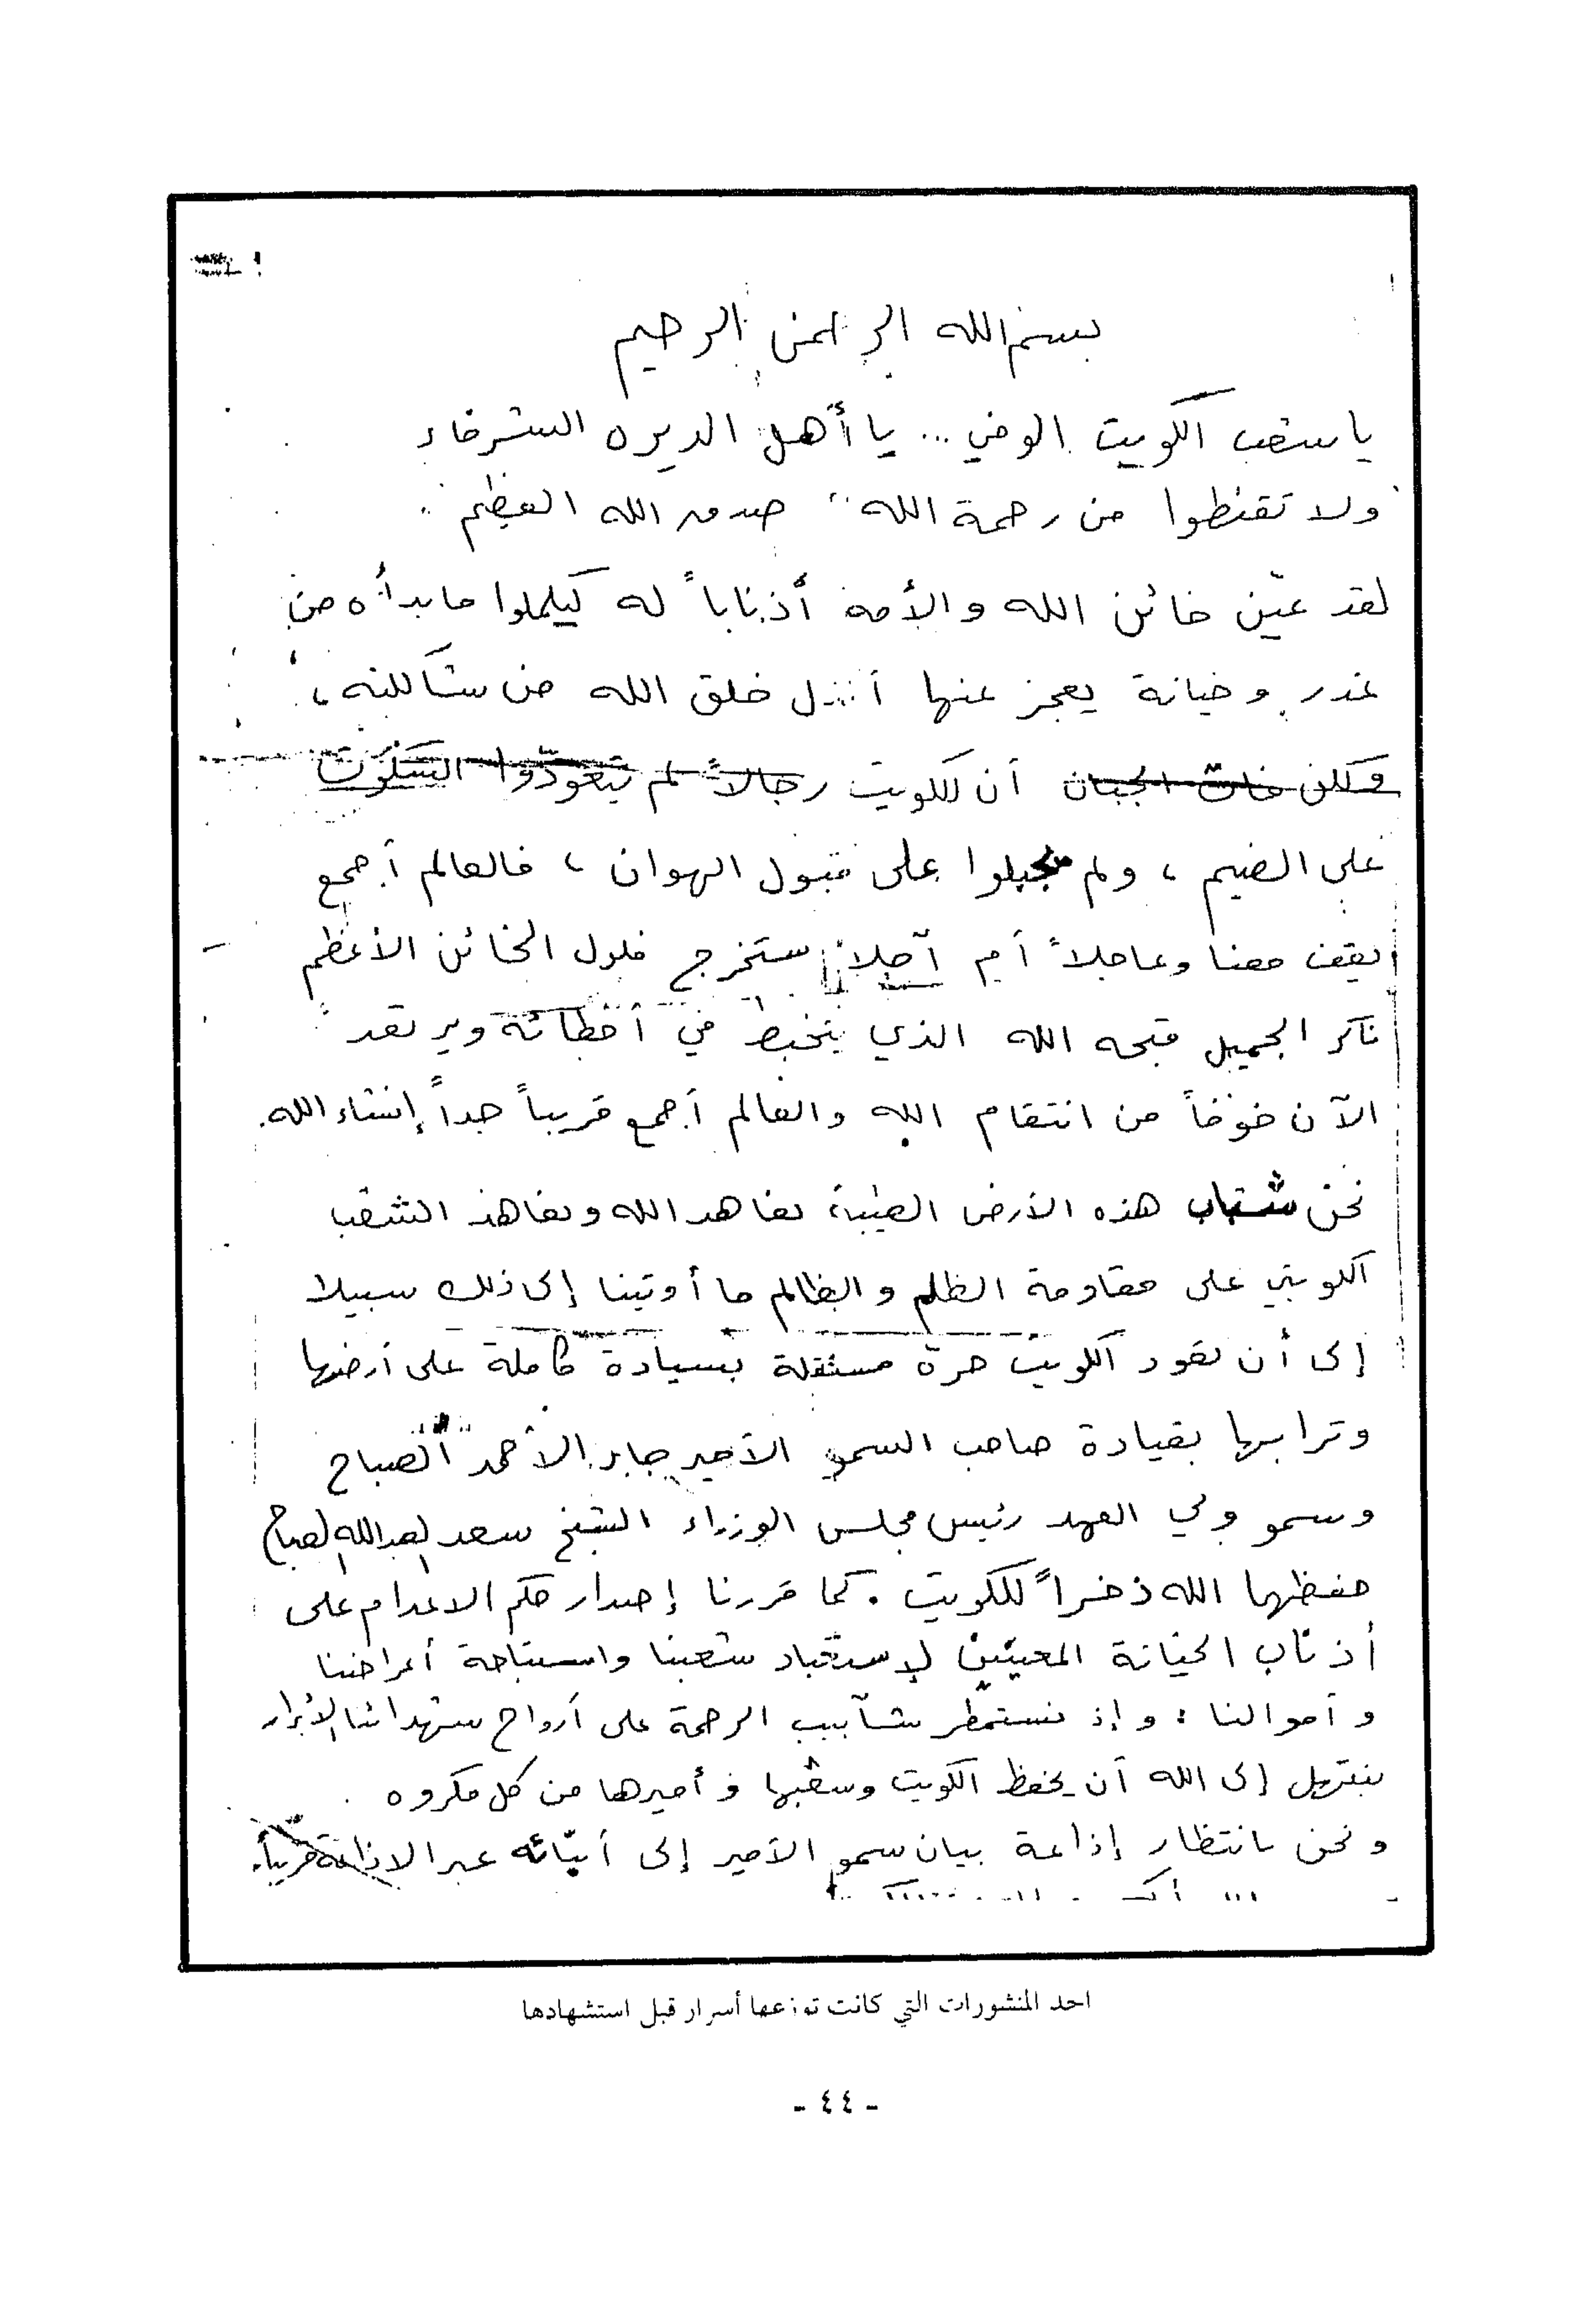 بسم الله الرحمن الرحيم
يا شعب الكويت الوفي ... يا أهل الديره الشرفاء
ولا تقنطوا من رحمة الله " صدق الله العظيم .
لقد عيّن خائن الله والأمة أذناباً له ليكملوا ما بدأه من
غدر وخيانة يعجز عنها أنذل خلق الله من شاكلته ،
ولكن فات الجبان أن للكويت رجالاً لم يتعودّوا السكوت
على الضيم ، ولم يجبلوا على قبول الهوان ، فالعالم أجمع
يقف معنا وعاجلاً أم آجلاً ستخرج فلول الخائن الأعظم
ناكر الجميل قبحه الله الذي يتخبط في أخطائه ويرتعد
الآن خوفاً من انتقام الله والعالم أجمع قريباً جداً إنشاء الله.
نحن شباب هذه الأرض الطيبة نعاهد الله ونعاهد الشعب
الكويتي على مقاومة الظلم والظالم ما أوتينا إلى ذلك سبيلا
إلى أن تعود الكويت حرة مستقلة بسيادة كاملة على أرضها
وترابها بقيادة صاحب السمو الأمير جابر الأحمد الصباح
وسمو ولي العهد رئيس مجلس الوزراء الشيخ سعد العبدالله الصباح
حفظهما الله ذخراً للكويت . كما قررنا إصدار حكم الاعدام على
أذناب الخيانة المعينين لإستعباد شعبنا واستباحة أعراضنا
وأموالنا : وإذ نستمطر شآبيب الرحمة على أرواح شهدائنا الأبرار
نبتهل إلى الله أن يحفظ الكويت وشعبها وأميرها من كل مكروه
ونحن بانتظار إذاعة بيان سمو الأمير إلى أبنائه عبر الاذاعة قريباً.
احد المنشورات التي كانت توزعها أسرار قبل استشهادها
- ٤٤ -